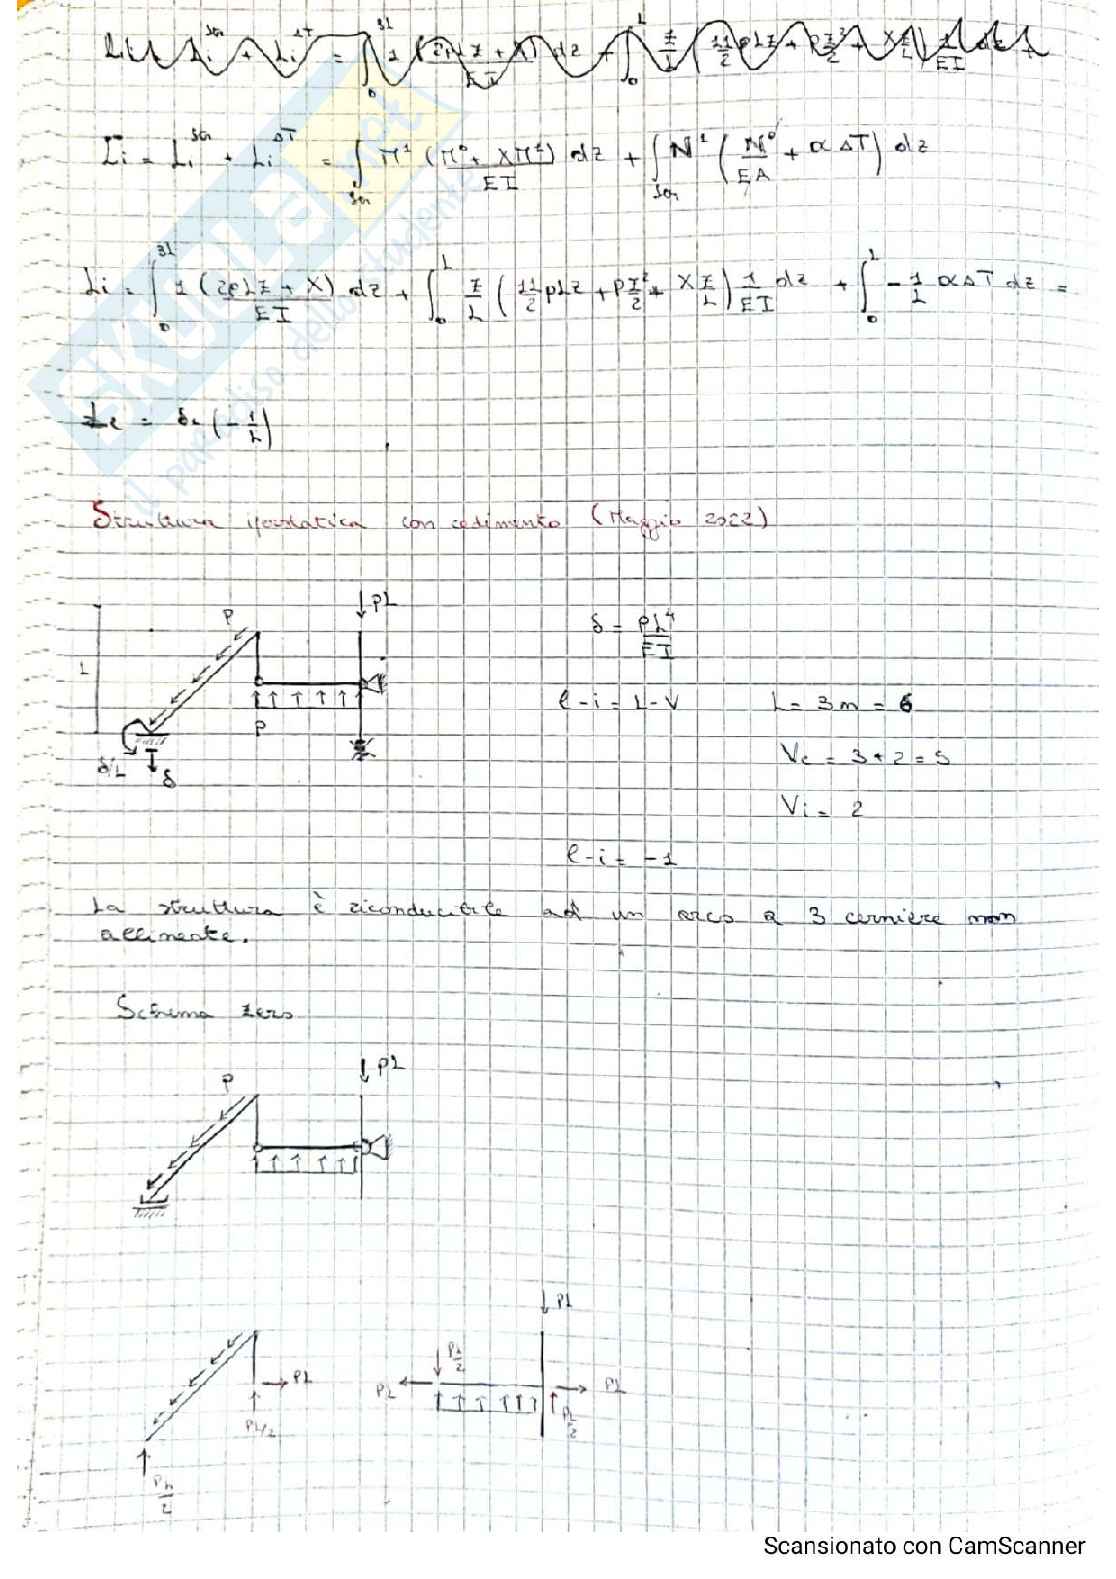 Li = Li^str + Li^ΔT = ∫str M¹ (M⁰ + XM¹)/EI dz + ∫str N¹ (N⁰/EA + α ΔT) dz
Li = ∫₀^3L 1 (2pLz + X)/EI dz + ∫₀^L z/L (11/2 pLz + p z²/2 + X z/L) 1/EI dz + ∫₀^L - 1/L α ΔT dz =
Le = δ · (- 1/L)
Struttura iperstatica con cedimento (Maggio 2022)
↓ pL
P
δ = pL⁴/EI
L
l - i = L - V
L = 3m = 6
P
Ve = 3 + 2 = 5
δ/L
δ
Vi = 2
l - i = -1
La struttura è riconducibile ad un arco a 3 cerniere non
allineate.
Schema zero
↓ pL
P
↓ PL
PL/2
PL
PL
PL
PL/2
PL/2
PL/2
SKUOLA.net
il paradiso dello studente
Scansionato con CamScanner